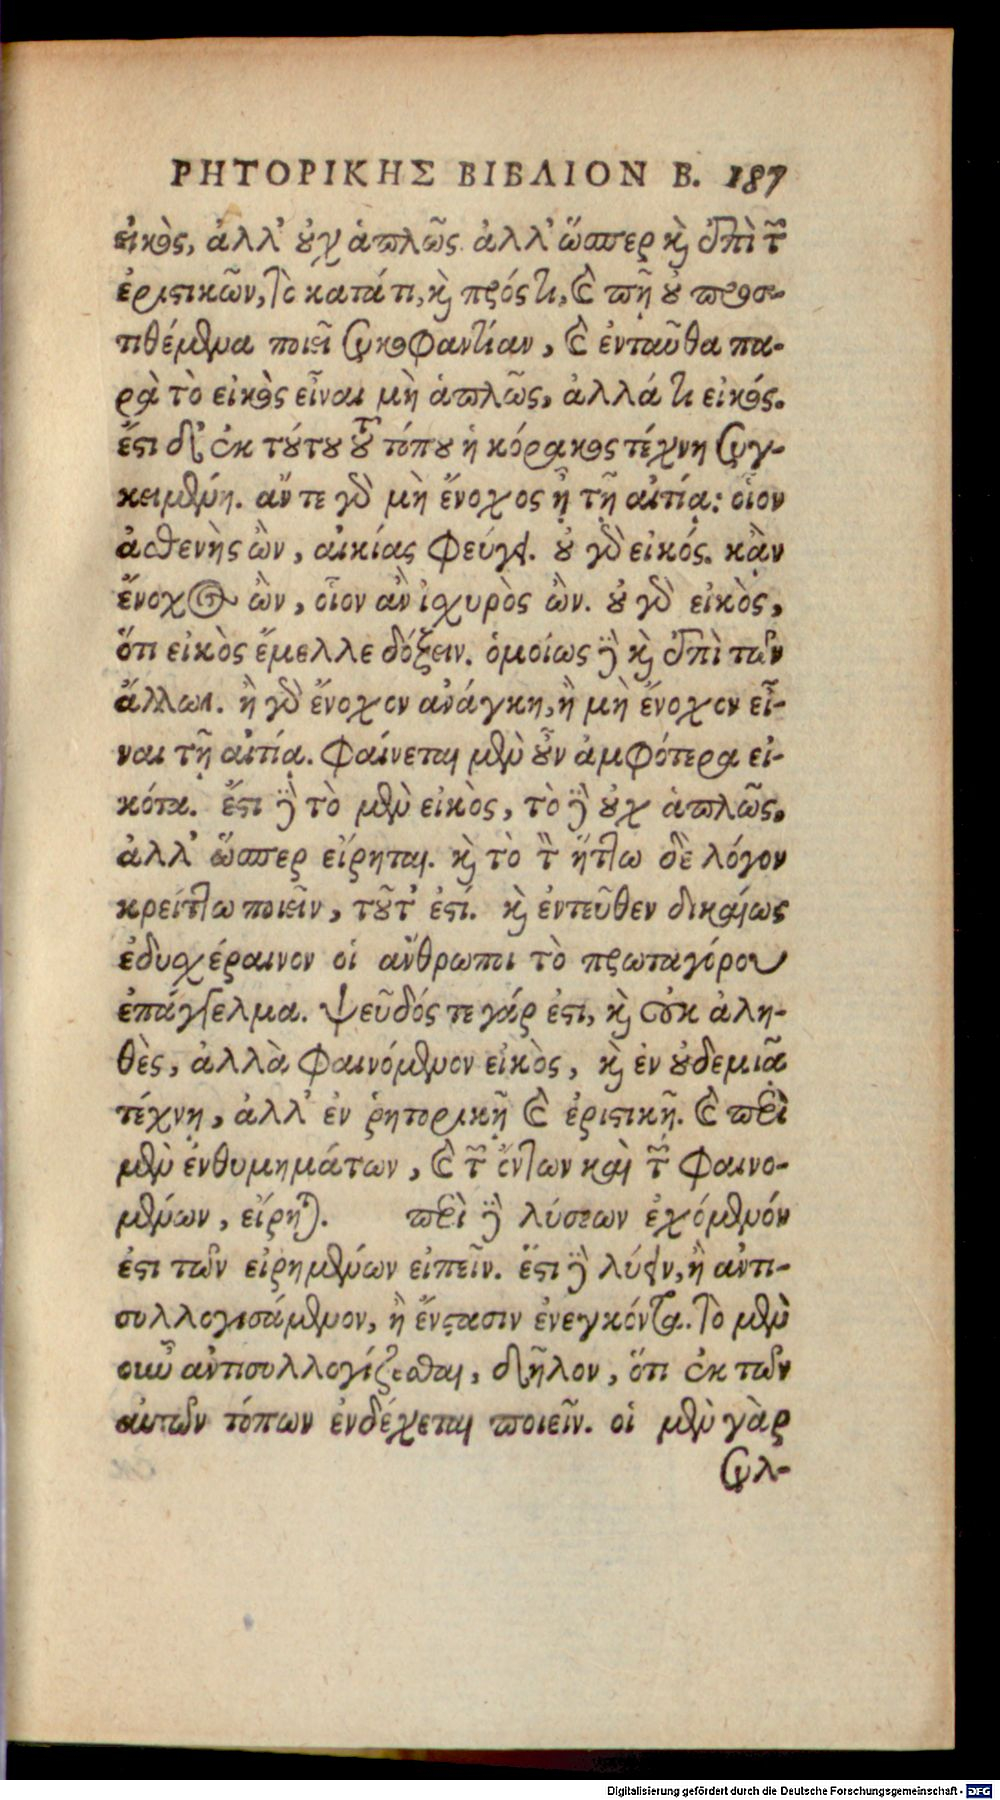 ΡΗΤΟΡΙΚΗΣ ΒΙΒΛΙΟΝ Β. 187
εἰκὸς, ἀλλ' οὐχ ἁπλῶς ἀλλ' ὥσπερ καὶ ἐπὶ τῶν
ἐριστικῶν, τὸ κατάτι, καὶ πρόστι, καὶ πῆ οὐ προσ-
τιθέμενα ποιεῖ συκοφαντίαν, καὶ ἐνταῦθα πα-
ρὰ τὸ εἰκὸς εἶναι μὴ ἁπλῶς, ἀλλά τι εἰκός.
ἔστι δ' ἐκ τούτου τοῦ τόπου ἡ κόρακος τέχνη συγ-
κειμένη. ἄν τε γὰρ μὴ ἔνοχος ᾖ τῇ αἰτίᾳ: οἷον
ἀσθενὴς ὢν, αἰκίας φεύγει. οὐ γὰρ εἰκός. κἂν
ἔνοχος ὢν, οἷον ἂν ἰσχυρὸς ὢν. οὐ γὰρ εἰκὸς,
ὅτι εἰκὸς ἔμελλε δόξειν. ὁμοίως δὲ καὶ ἐπὶ τῶν
ἄλλων. ἢ γὰρ ἔνοχον ἀνάγκη, ἢ μὴ ἔνοχον εἶ-
ναι τῇ αἰτίᾳ. φαίνεται μὲν οὖν ἀμφότερα εἰ-
κότα. ἔστι δὲ τὸ μὲν εἰκὸς, τὸ δὲ οὐχ ἁπλῶς,
ἀλλ' ὥσπερ εἴρηται. καὶ τὸ τὸν ἥττω δὲ λόγον
κρείττω ποιεῖν, τοῦτ' ἐστί. καὶ ἐντεῦθεν δικαίως
ἐδυσχέραινον οἱ ἄνθρωποι τὸ πρωταγόρου
ἐπάγγελμα. ψεῦδός τε γάρ ἐστι, καὶ οὐκ ἀλη-
θὲς, ἀλλὰ φαινόμενον εἰκὸς, καὶ ἐν οὐδεμιᾷ
τέχνῃ, ἀλλ' ἐν ῥητορικῇ καὶ ἐριστικῇ. καὶ περὶ
μὲν ἐνθυμημάτων, καὶ τῶν ὄντων καὶ τῶν φαινο-
μένων, εἴρηται. περὶ δὲ λύσεων ἐχόμενόν
ἐστι τῶν εἰρημένων εἰπεῖν. ἔστι δὲ λύειν, ἢ ἀντι-
συλλογισάμενον, ἢ ἔνστασιν ἐνεγκόντα. τὸ μὲν
οὖν ἀντισυλλογίζεσθαι, δῆλον, ὅτι ἐκ τῶν
αὐτῶν τόπων ἐνδέχεται ποιεῖν. οἱ μὲν γὰρ
συλ-
Digitalisierung gefördert durch die Deutsche Forschungsgemeinschaft - DFG